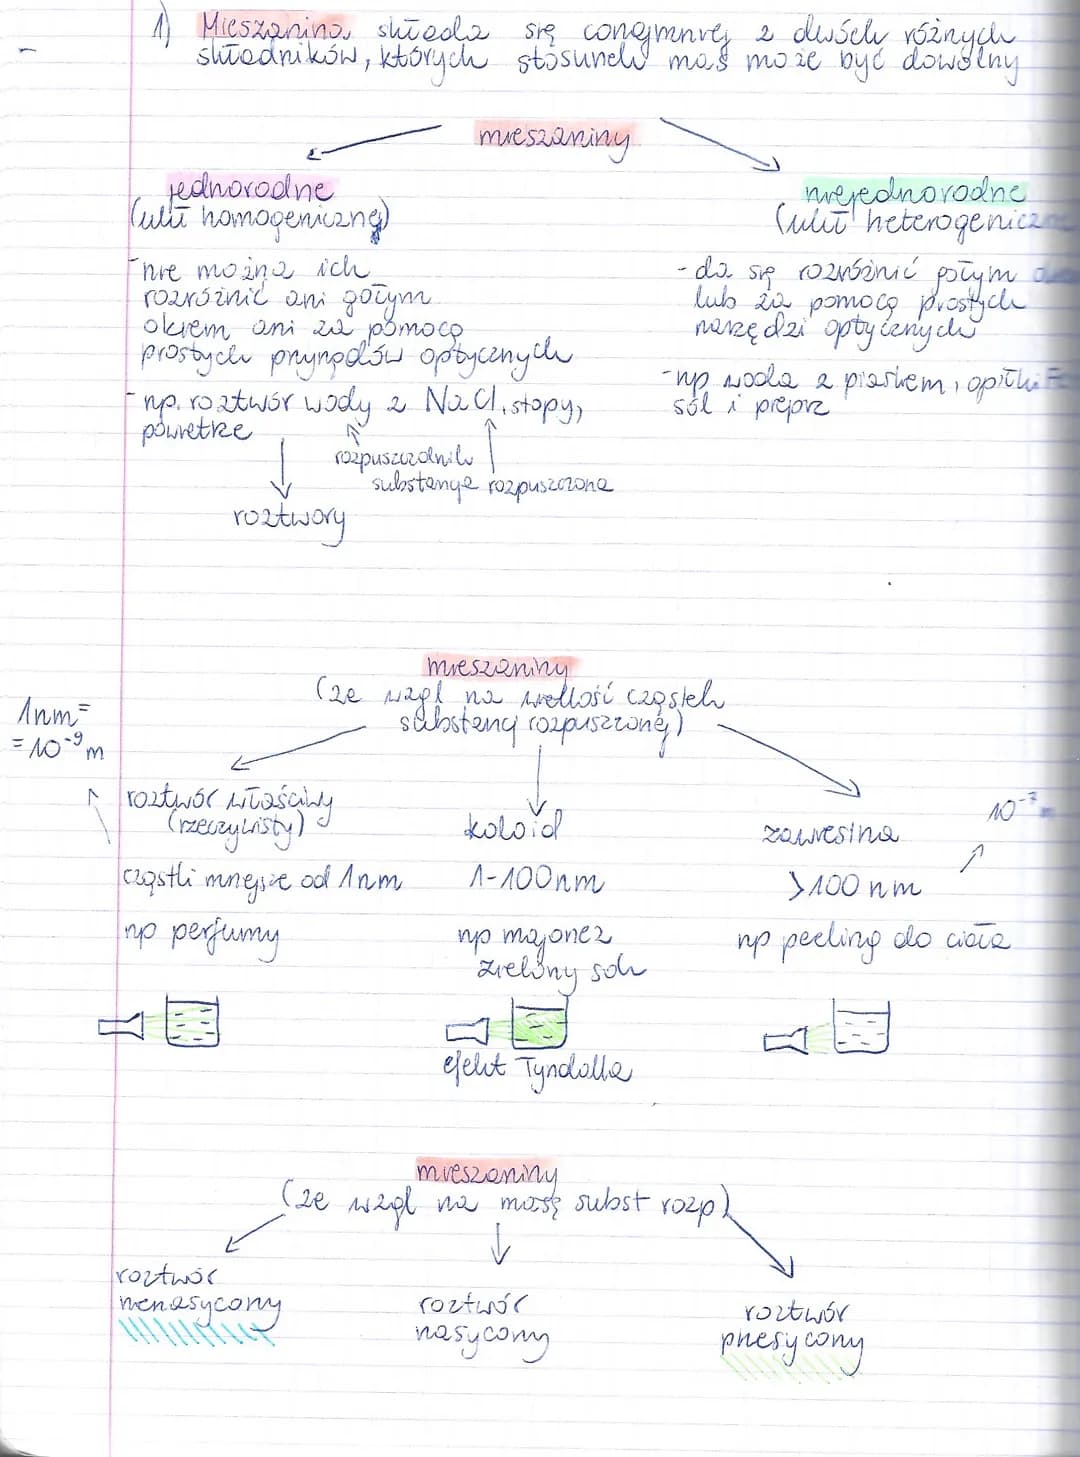 1) Mieszanina składa się conajmniej z dwóch różnych
składników, których stosunek mas może być dowolny
mieszaniny
jednorodne
(ukł homogeniczne)
niejednorodne
(ukł heterogeniczne
- nie można ich
rozróżnić ani gołym
okiem ani za pomocą
prostych przyrządów optycznych
- np. roztwór wody z NaCl, stopy,
powietrze
rozpuszczalnik
substancja rozpuszczona
roztwory
- da się rozróżnić gołym
lub za pomocą prostych
narzędzi optycznych
- np woda z piaskiem, opiłki Fe
sól i pieprz
mieszaniny
(ze wzgl na wielkość cząstek
substancji rozpuszczonej)
1nm=
=10⁻⁹m
roztwór właściwy
(rzeczywisty)
cząstki mniejsze od 1nm
np perfumy
koloid
1-100nm
np majonez
zielony sok
efekt Tyndalla
zawiesina
10⁻⁷m
>100 nm
np peeling do ciała
mieszaniny
(ze wzgl na masę subst rozp)
roztwór
nienasycony
roztwór
nasycony
roztwór
przesycony